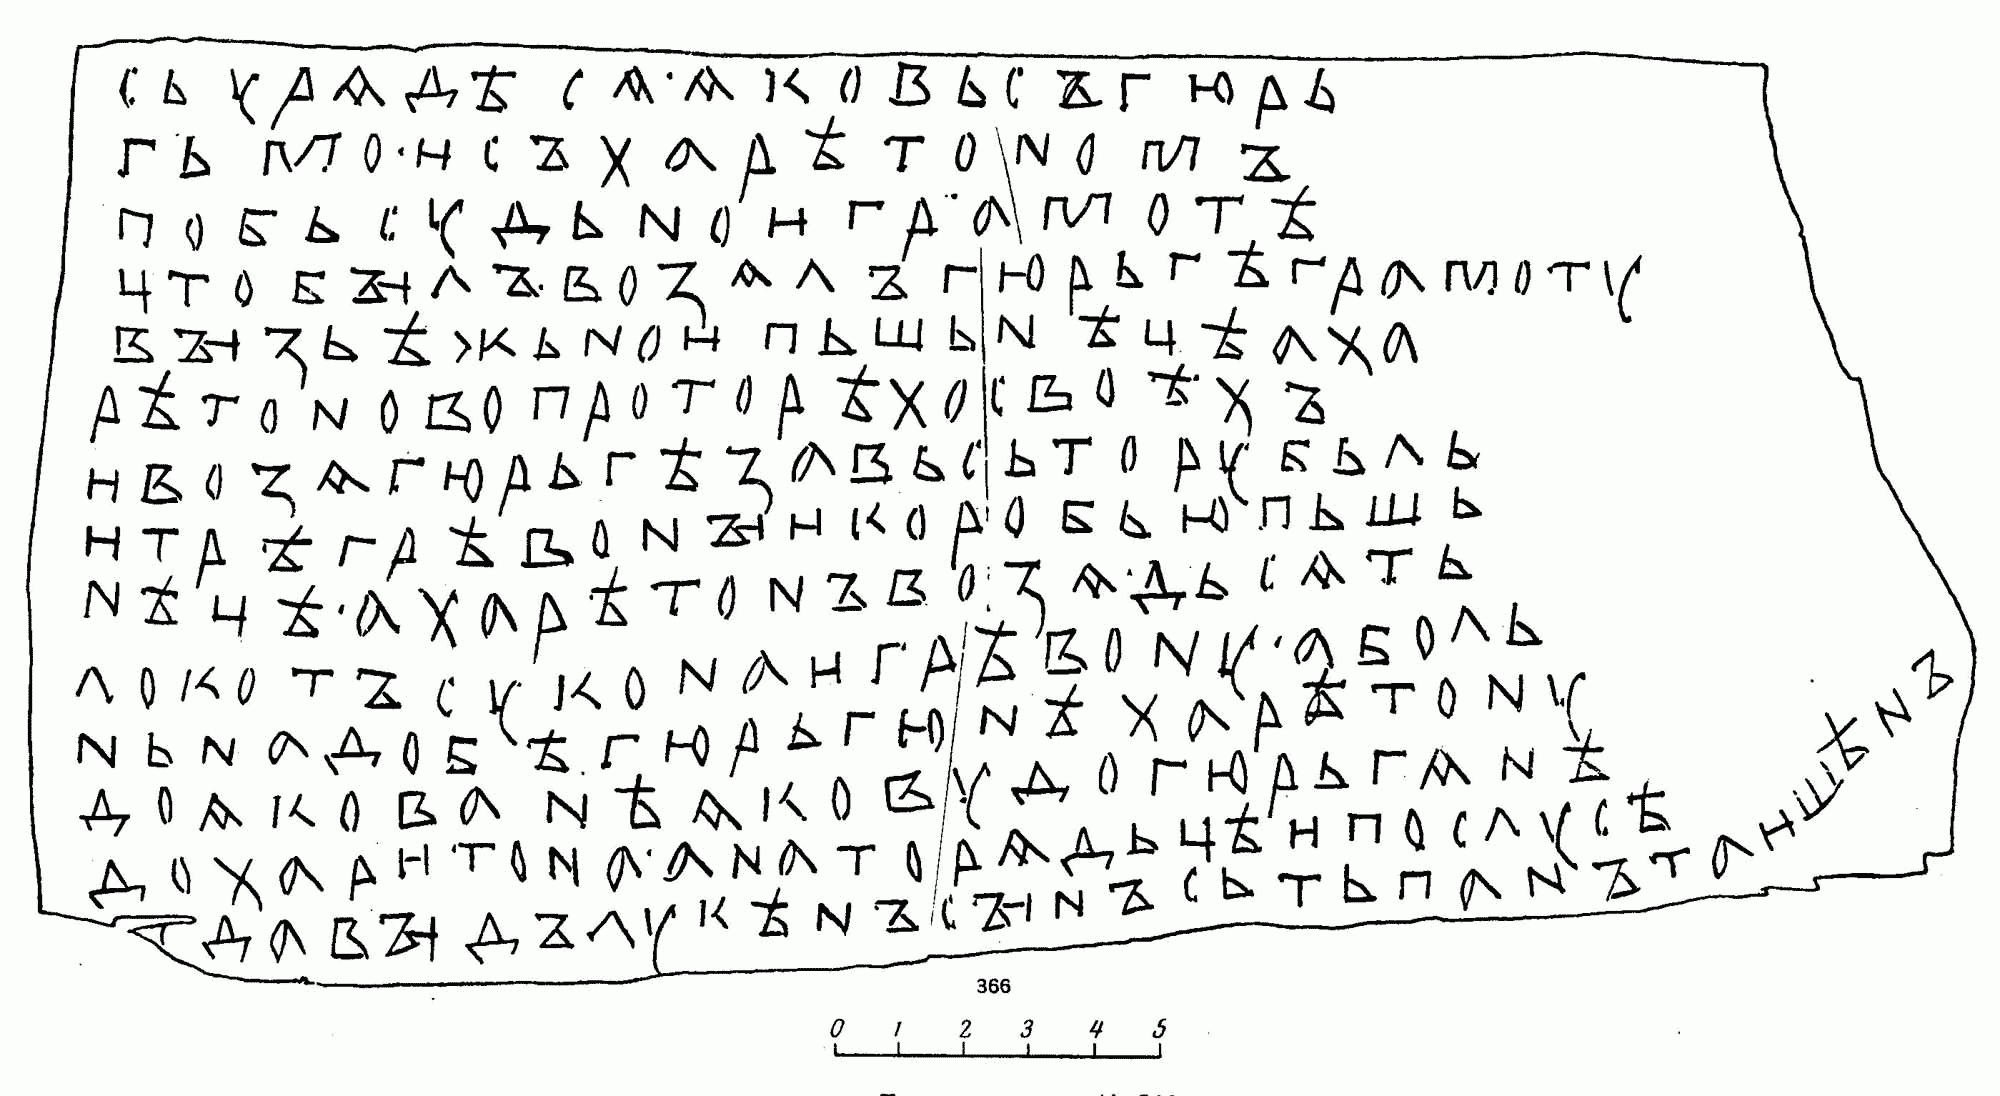 сьурѧдѣсѧ·ѧковьсъгюрь
гьмо·исъхарѣтономъ
побьсудьноиграмотѣ
цтобꙑлъ·возѧлъгюрьгѣграмоту
вꙑзьѣжьноипьшьнѣцѣаха
рѣтоновопроторѣхосвоѣхъ
ивозѧгюрьгѣзавьсьторубьль
итрѣгрѣвонꙑикоробьюпьшь
нѣцѣ·ахарѣтонъвозѧ·дьсѧть
локотъсуконаигрѣвону·аболь
ньнадобѣгюрьгюнѣхарѣтону
доѧкованѣѧковудогюрьгѧнѣ
дохаритона·анаторѧдьцѣипослусѣ
тдавꙑдълукѣнъсꙑнъсьтьпанътаишѣнъ
366
0 1 2 3 4 5